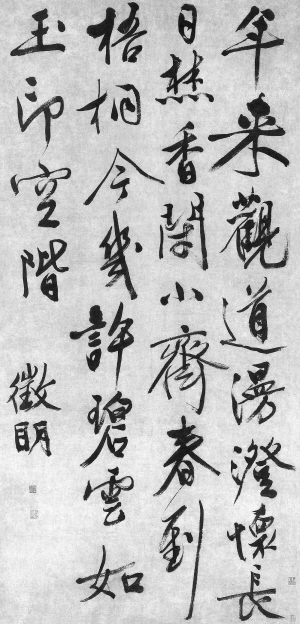 年來觀道漫澄懷長
日焚香閉小齋春到
梧桐今幾許碧雲如
玉印空階
徵明